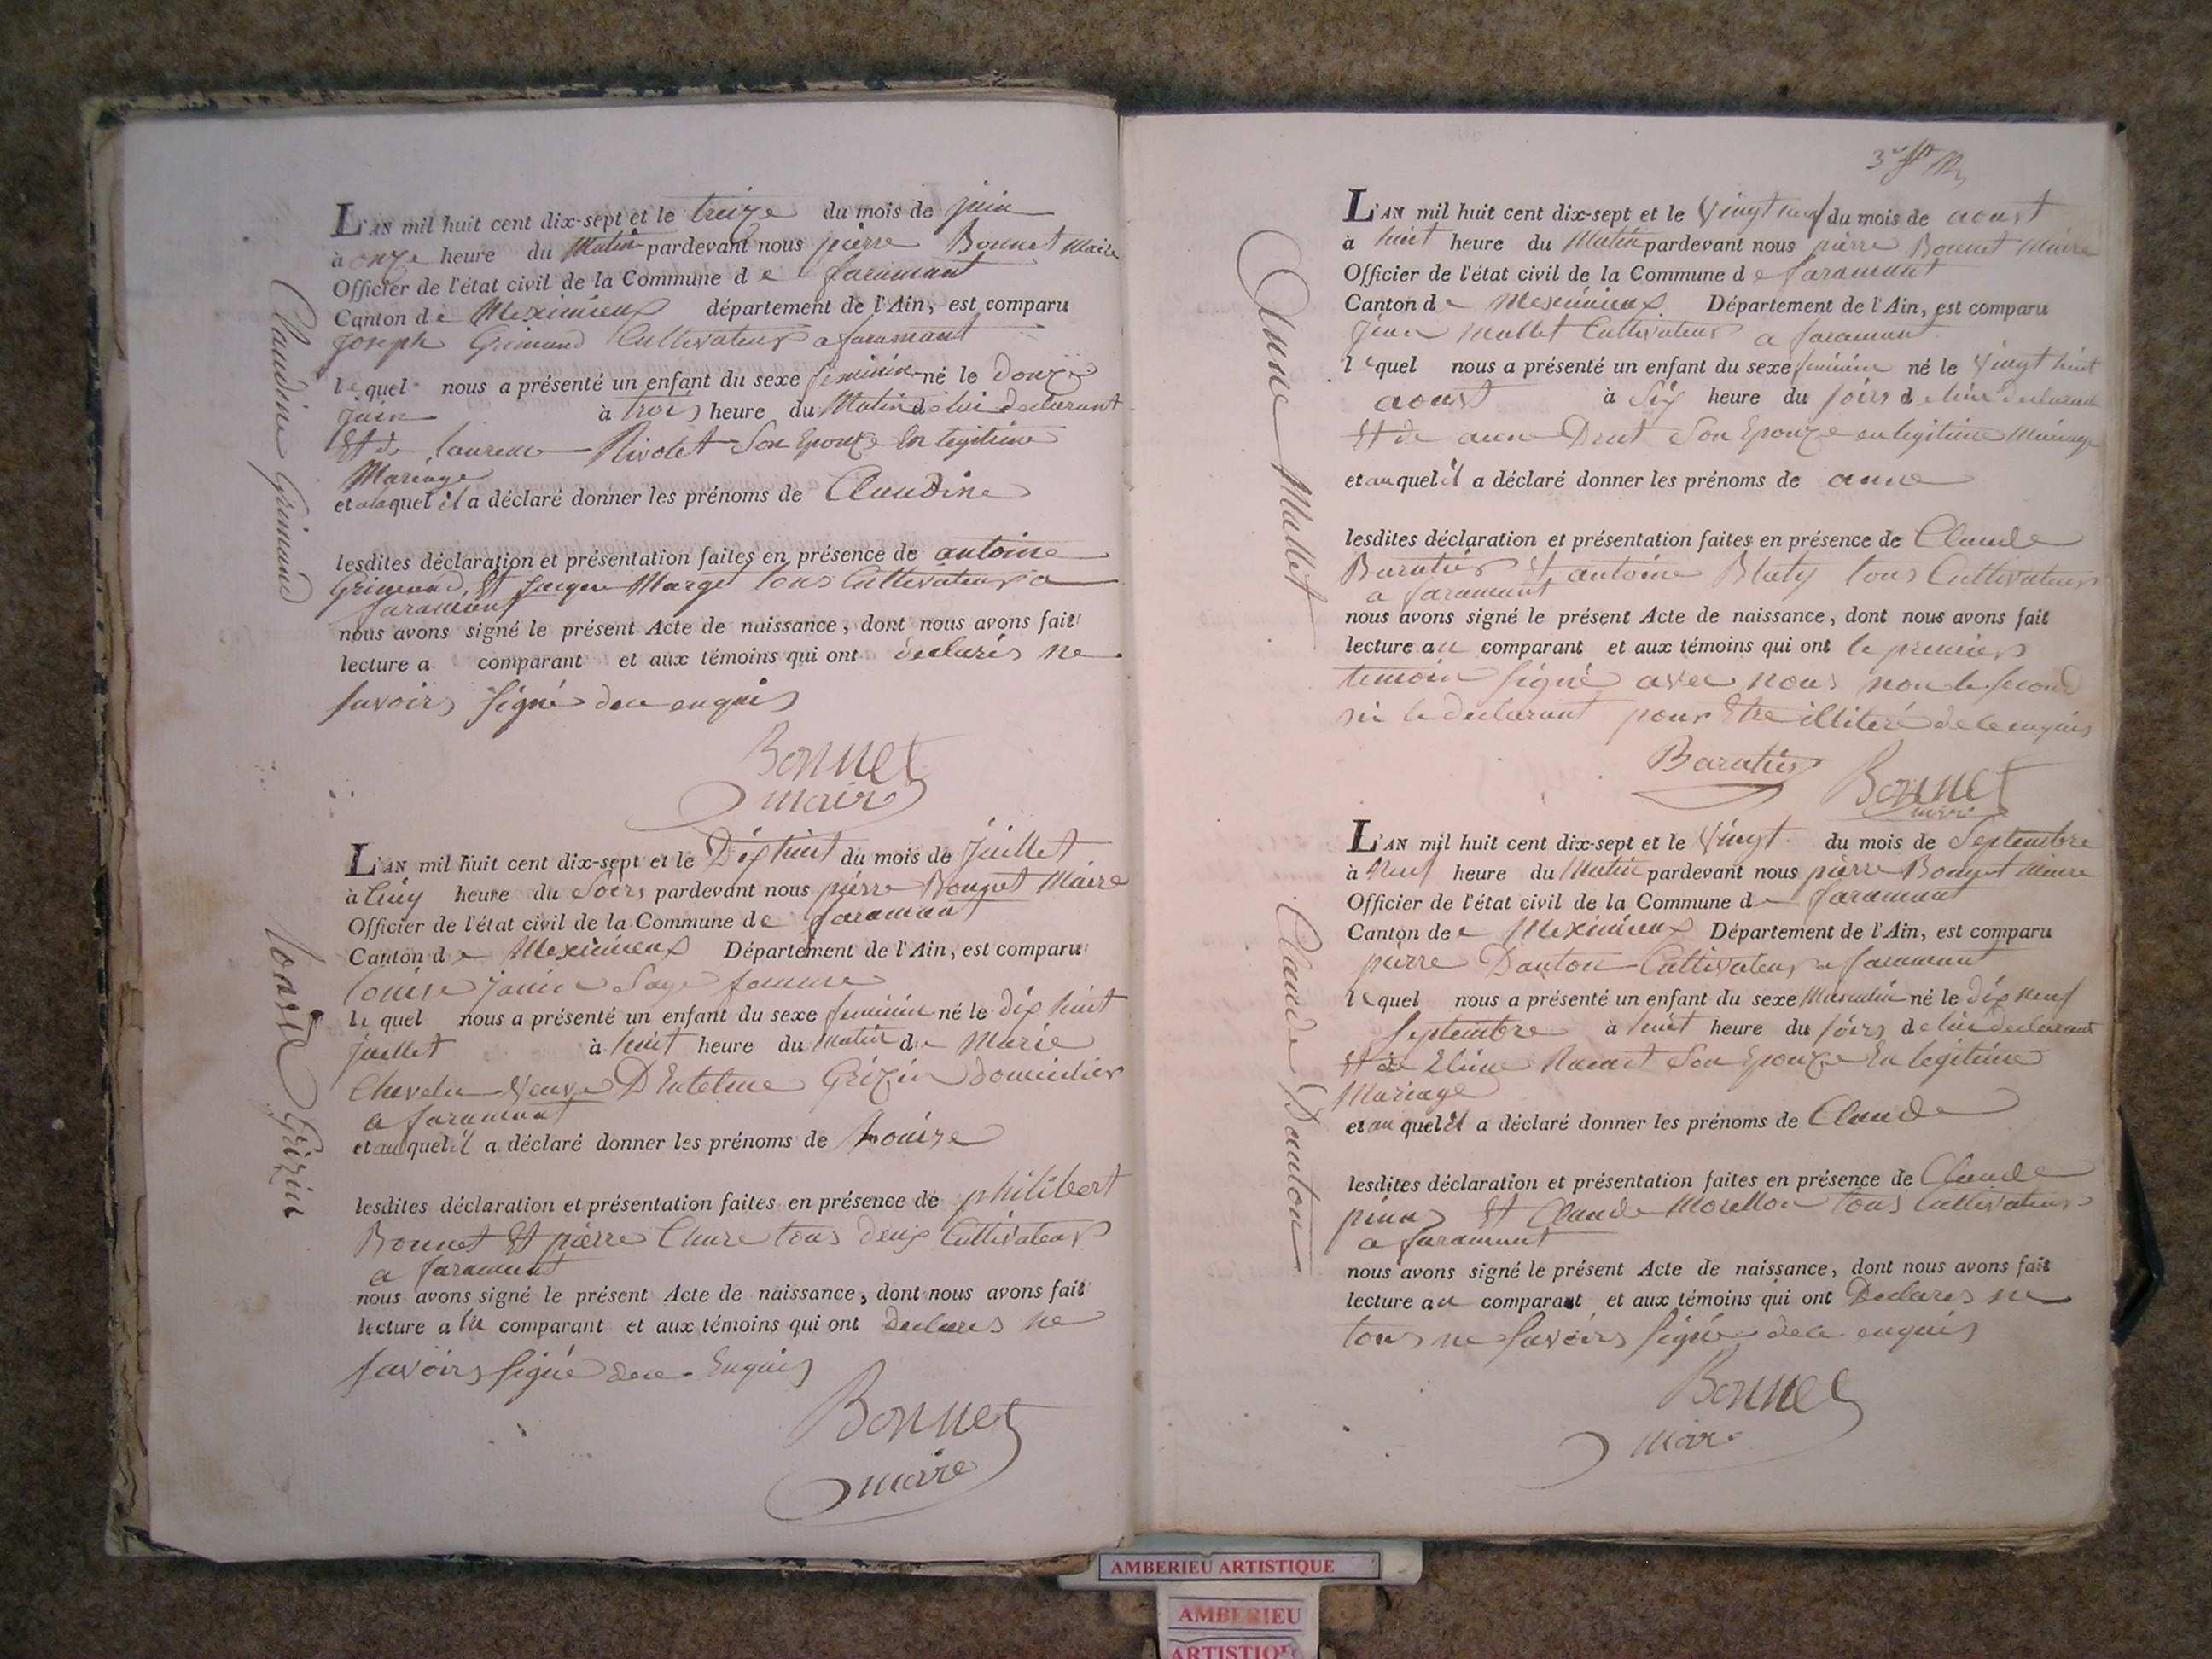 Claudine Grimaud
L'AN mil huit cent dix-sept et le treize du mois de juin
à onze heure du Matin pardevant nous pierre Bonnet Maire
Officier de l'état civil de la Commune d e faramant
Canton de Meximieux département de l'Ain, est comparu
Joseph Grimaud Cultivateur a faramant
le quel nous a présenté un enfant du sexe feminin né le douze
juin à trois heure du Matin de lui declarant
Et de laurence Rivolet Son Epouze En legitime
Mariage
et alaquel il a déclaré donner les prénoms de Claudine
lesdites déclaration et présentation faites en présence de antoine
Grimaud, Et Marge tous Cultivateurs a
faramant
nous avons signé le présent Acte de naissance, dont nous avons fait
lecture a comparant et aux témoins qui ont declarés ne
savoirs signé dece enquis
Bonnet
maire
Grizin
L'AN mil huit cent dix-sept et le Dix huit du mois de Juillet
à Cinq heure du Soirs pardevant nous pierre Bonnet Maire
Officier de l'état civil de la Commune de faramant
Canton d e Meximieux Département de l'Ain, est comparu
Louise Janin Sage femme
le quel nous a présenté un enfant du sexe feminin né le dix huit
juillet à huit heure du matin de Marie
Chevelu Veuve D'Entelme Grizin domicilier
a faramant
et au quel il a déclaré donner les prénoms de Louize
lesdites déclaration et présentation faites en présence de philibert
Bonnet Et pierre Chure tous deux Cultivateurs
a faramant
nous avons signé le présent Acte de naissance, dont nous avons fait
lecture a la comparant et aux témoins qui ont declarés ne
savoirs signé dece Enquis
Bonnet
maire
Anne Mallet
L'AN mil huit cent dix-sept et le Vingt neuf du mois de aoust
à huit heure du Matin pardevant nous pierre Bonnet Maire
Officier de l'état civil de la Commune d e faramant
Canton de Meximieux Département de l'Ain, est comparu
Jean Mallet Cultivateur a faramant
lequel nous a présenté un enfant du sexe feminin né le Vingt huit
aoust à Six heure du soirs de lui declarant
Et de anne Drut Son Epouze en legitime Mariage
et au quel il a déclaré donner les prénoms de anne
lesdites déclaration et présentation faites en présence de Claude
Baratier Et antoine Blaty tous Cultivateurs
a faramant
nous avons signé le présent Acte de naissance, dont nous avons fait
lecture au comparant et aux témoins qui ont le premiers
temoin signé avec nous non le second
ni le declarant pour Etre illiteré de ce enquis
Baratier
Bonnet
maire
Claude Danton
L'AN mil huit cent dix-sept et le Vingt du mois de Septembre
à Neuf heure du Matin pardevant nous pierre Bonnet Maire
Officier de l'état civil de la Commune de faramant
Canton de Meximieux Département de l'Ain, est comparu
pierre Danton Cultivateur a faramant
lequel nous a présenté un enfant du sexe Masculin né le dix Neuf
Septembre à huit heure du soirs de lui declarant
Et de Son Epouze En legitime
Mariage
et au quel il a déclaré donner les prénoms de Claude
lesdites déclaration et présentation faites en présence de Claude
Et Claude Morellon tous Cultivateurs
a faramant
nous avons signé le présent Acte de naissance, dont nous avons fait
lecture au comparant et aux témoins qui ont Declarés ne
tous ne savoirs signé dece enquis
Bonnet
maire
AMBERIEU ARTISTIQUE
AMBERIEU
ARTISTIQUE